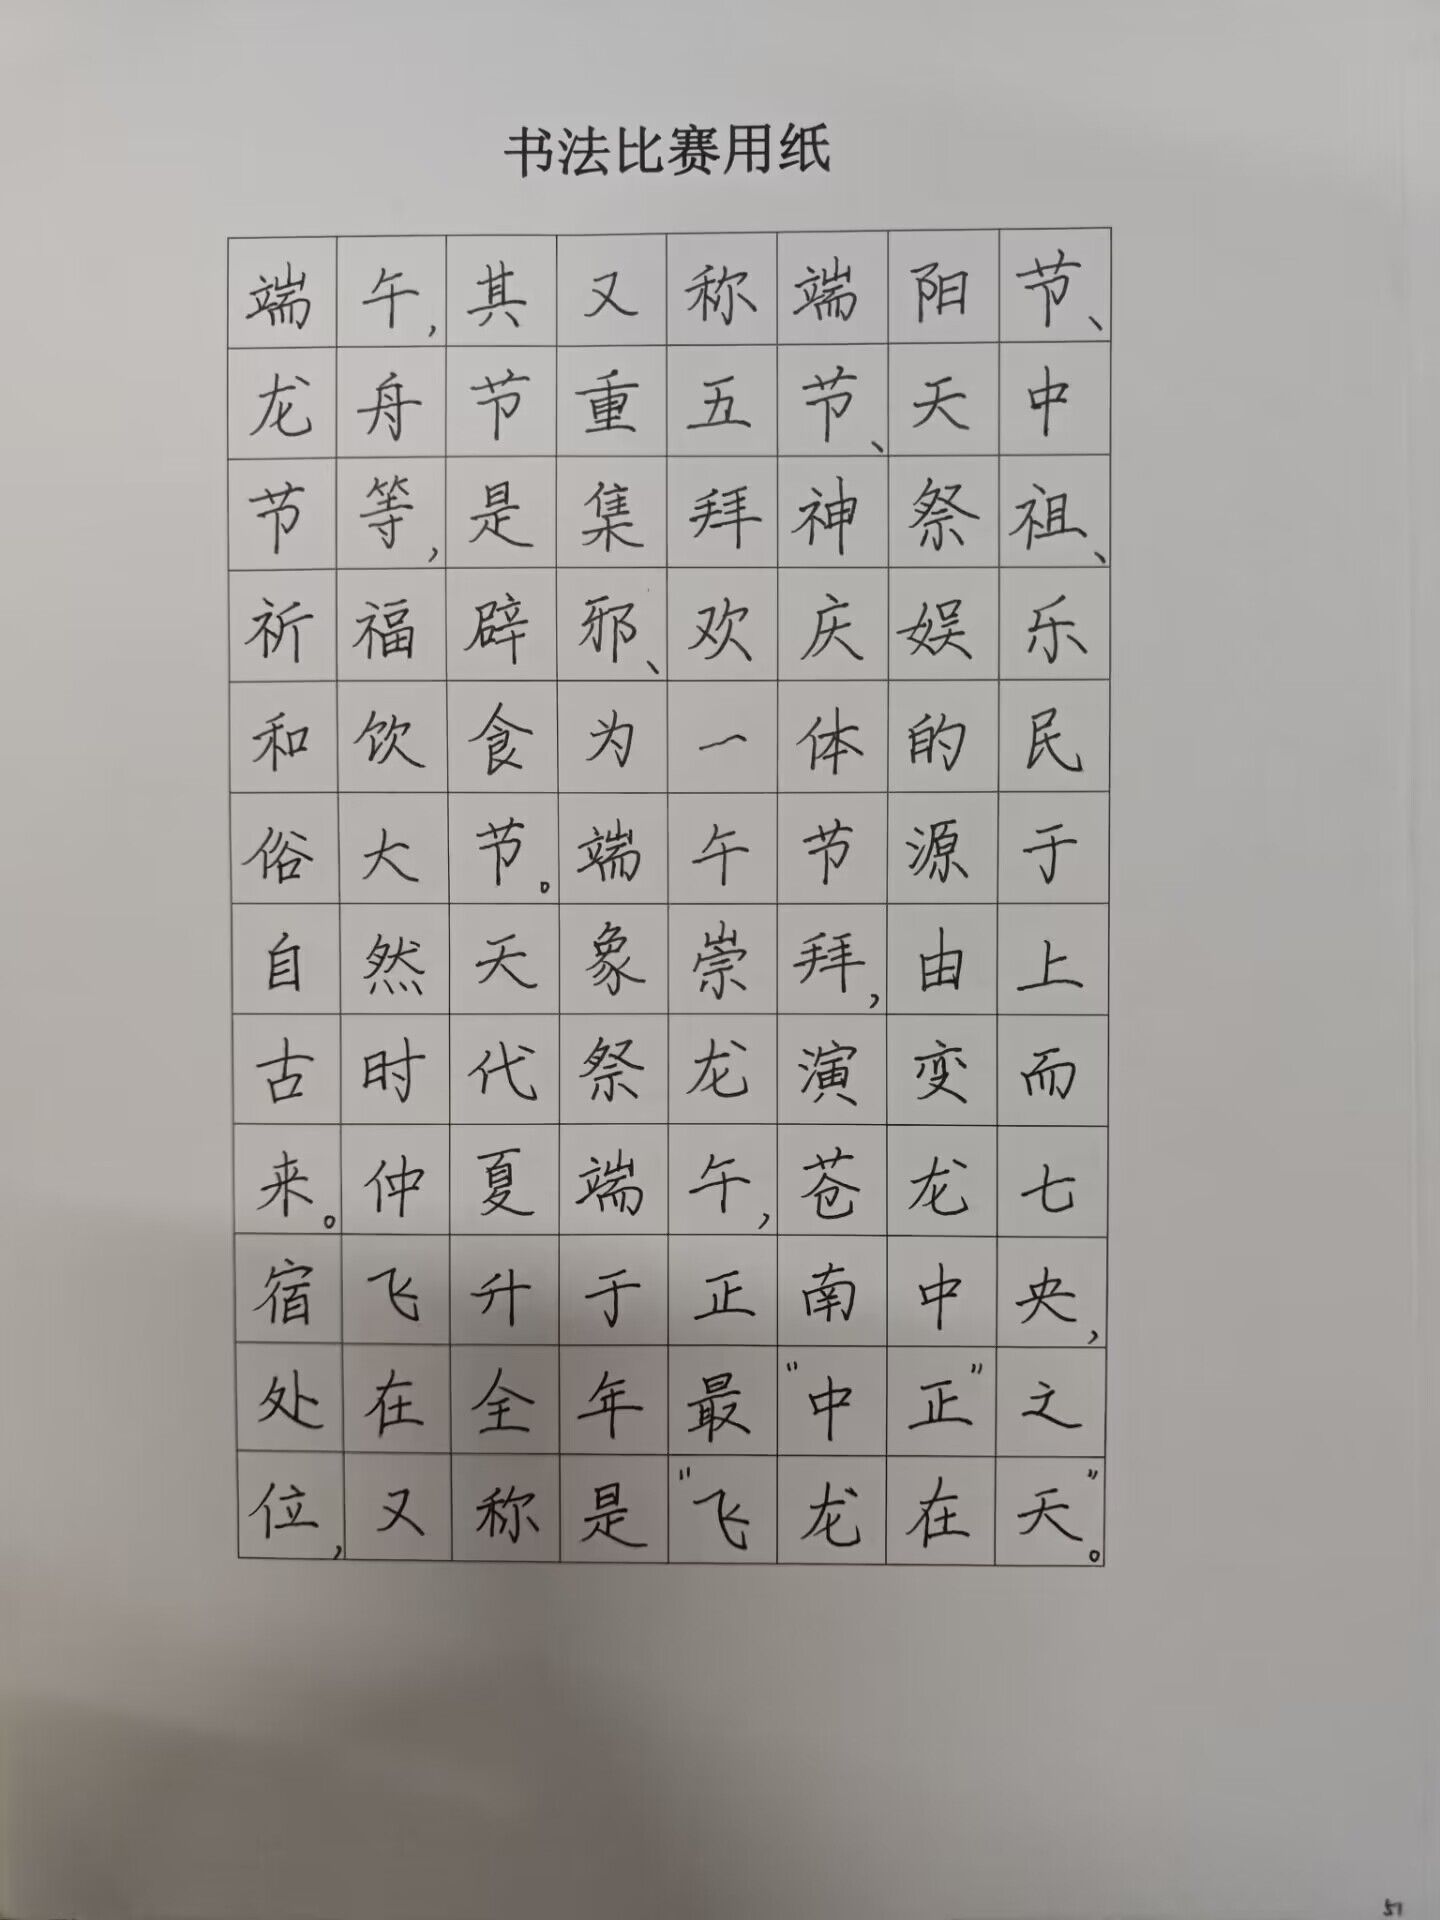 书法比赛用纸
端午,其又称端阳节、
龙舟节重五节、天中
节等,是集拜神祭祖、
祈福辟邪、欢庆娱乐
和饮食为一体的民
俗大节。端午节源于
自然天象崇拜,由上
古时代祭龙演变而
来。仲夏端午,苍龙七
宿飞升于正南中央,
处在全年最“中正”之
位,又称是“飞龙在天”。
51